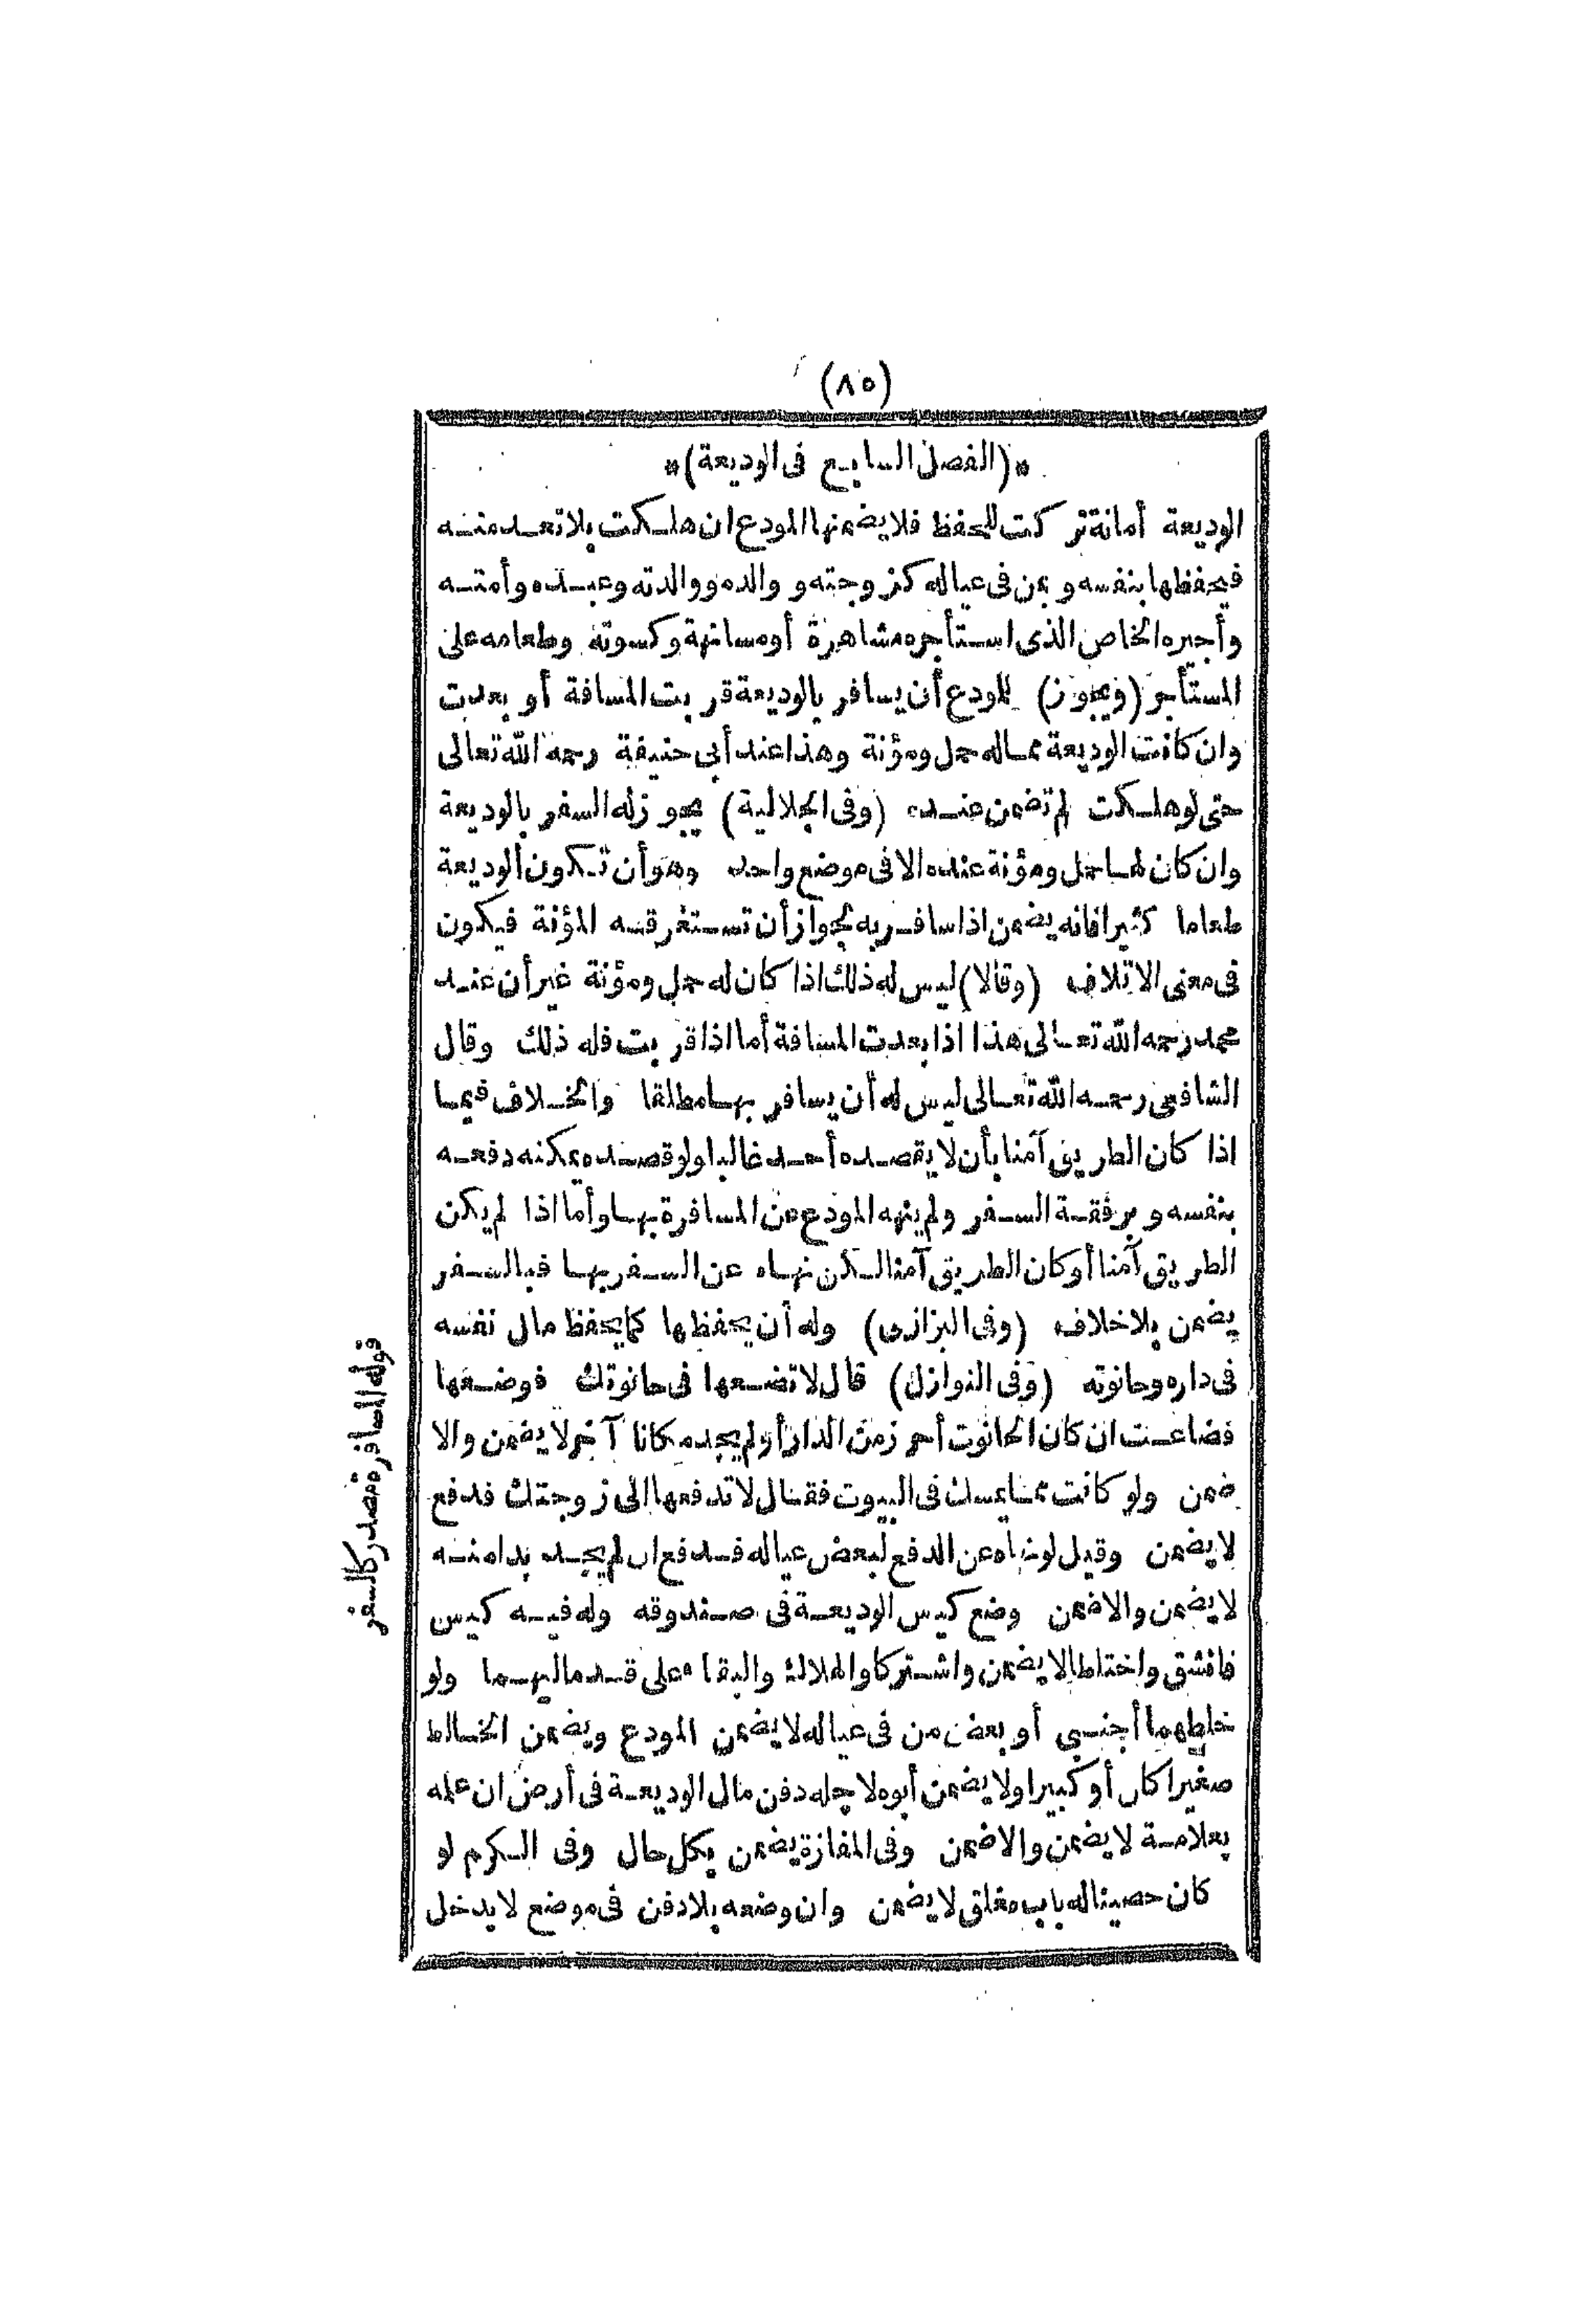 (٨٥)
*(الفصل السابع فى الوديعة)*
الوديعة أمانة تركت للحفظ فلا يضمنها المودع ان هلكت بلا تعد منه
فيحفظها بنفسه وبمن فى عياله كزوجته ووالده ووالدته وعبده وأمته
وأجيره الخاص الذى استأجره مشاهرة أو مسانهة وكسوته وطعامه على
المستأجر (ويجوز) للمودع أن يسافر بالوديعة قربت المسافة أو بعدت
وان كانت الوديعة مما له حمل ومؤنة وهذا عند أبى حنيفة رحمه الله تعالى
حتى لو هلكت لم تضمن عنده (وفى الجلالية) يجوز له السفر بالوديعة
وان كان لها حمل ومؤنة عنده الا فى موضع واحد وهو أن تكون الوديعة
طعاما كثيرا فانه يضمن اذا سافر به لجواز أن تستغرقه المؤنة فيكون
فى معنى الاتلاف (وقالا) ليس له ذلك اذا كان له حمل ومؤنة غير أن عند
محمد رحمه الله تعالى هذا اذا بعدت المسافة أما اذا قربت فله ذلك وقال
الشافعى رحمه الله تعالى ليس له أن يسافر بها مطلقا والخلاف فيما
اذا كان الطريق آمنا بأن لا يقصده أحد غالبا ولو قصده يمكنه دفعه
بنفسه وبرفقة السفر ولم ينهه المودع عن المسافرة بها وأما اذا لم يكن
الطريق آمنا أو كان الطريق آمنا لكن نهاه عن السفر بها فبالسفر
يضمن بلا خلاف (وفى البزازى) وله أن يحفظها كما يحفظ مال نفسه
فى داره وحانوته (وفى النوازل) قال لا تضعها فى حانوتك فوضعها
فضاعت ان كان الحانوت أحرز من الدار أو لم يجد مكانا آخر لا يضمن والا
ضمن ولو كانت مما يمسك فى البيوت فقال لا تدفعها الى زوجتك فدفع
لا يضمن وقيل لو نهاه عن الدفع لبعض عياله فدفع ان لم يجد بدا منه
لا يضمن والا ضمن وضع كيس الوديعة فى صندوقه وله فيه كيس
فانشق واختلطا لا يضمن واشتركا والهلاك والبقاء على قدر ماليهما ولو
خلطهما أجنبى أو بعض من فى عياله لا يضمن المودع ويضمن الخالط
صغيرا كان أو كبيرا ولا يضمن أبوه لاجله دفن مال الوديعة فى أرض ان علمه
بعلامة لا يضمن والا ضمن وفى المفازة يضمن بكل حال وفى الكرم لو
كان حصينا له باب مغلق لا يضمن وان وضعه بلا دفن فى موضع لا يدخل
قوله المسافرة مصدر كالسفر